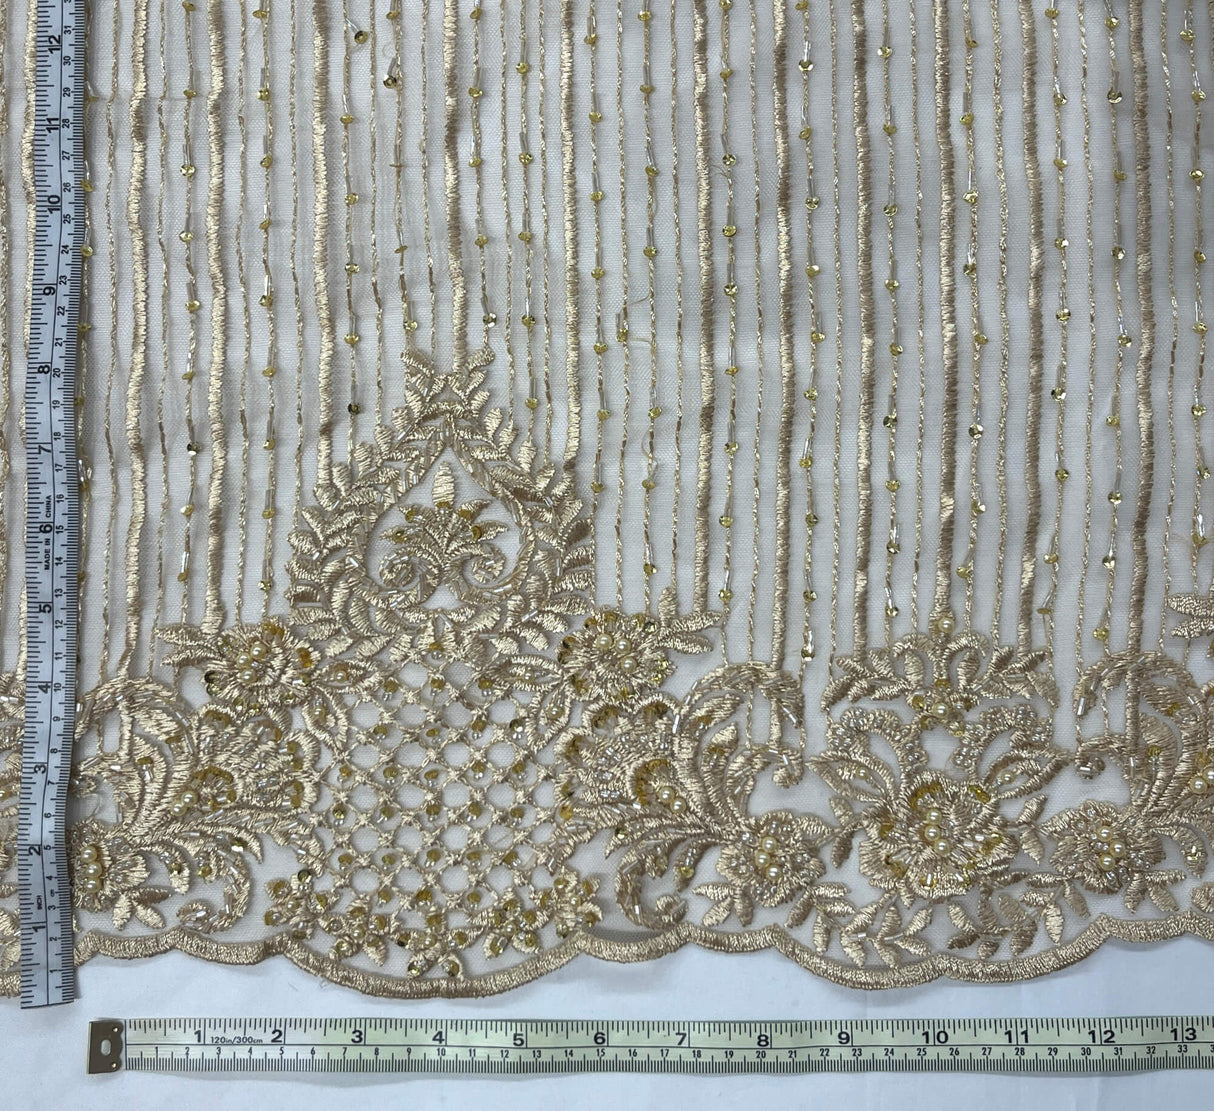 12 31
30
29
11 28
27
26
10 25
24
9 23
22
21
8 20
19
18
7 17
16
MADE IN CHINA
6 15
14
13
5 12
11
4 10
9
8
3 7
6
5
2 4
3
INCH
1 2
1
1 2 3 4 5 6 7 8 9 10 11 12 13
120in/300cm
1 2 3 4 5 6 7 8 9 10 11 12 13 14 15 16 17 18 19 20 21 22 23 24 25 26 27 28 29 30 31 32 33